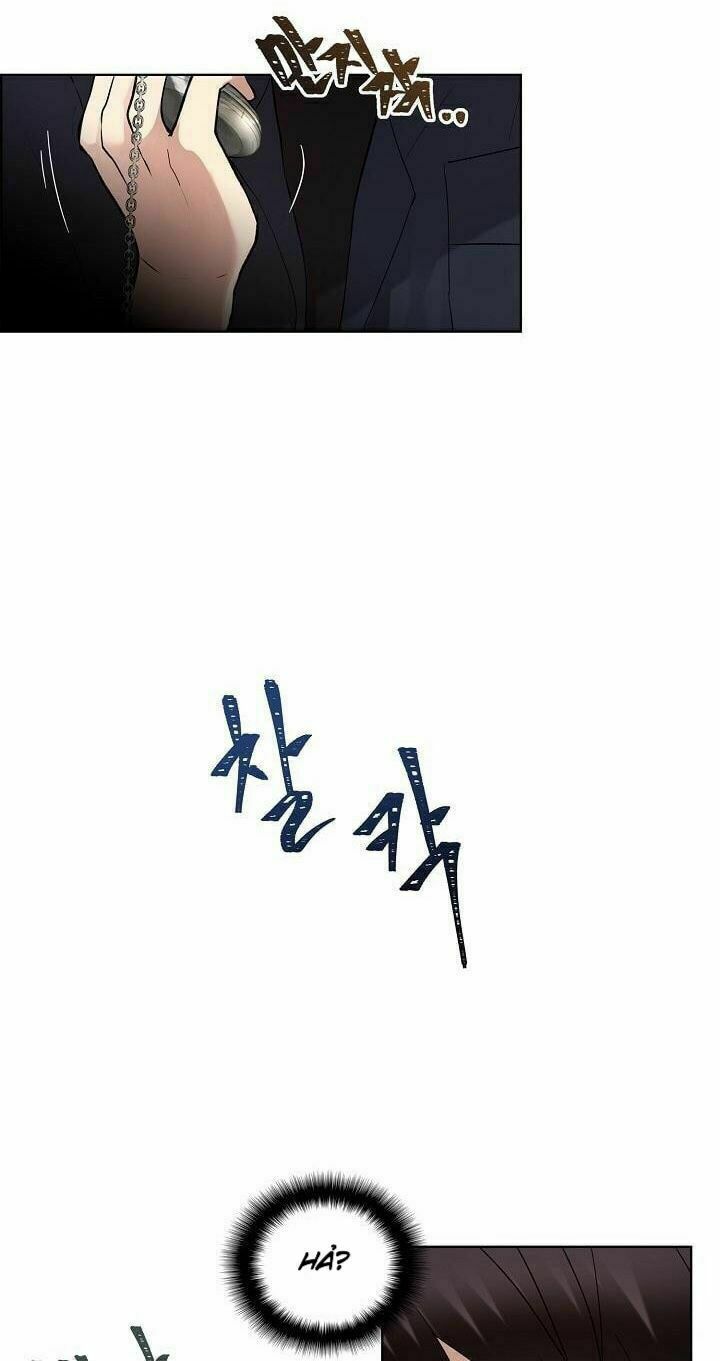 만지작..
찰칵
HẢ?